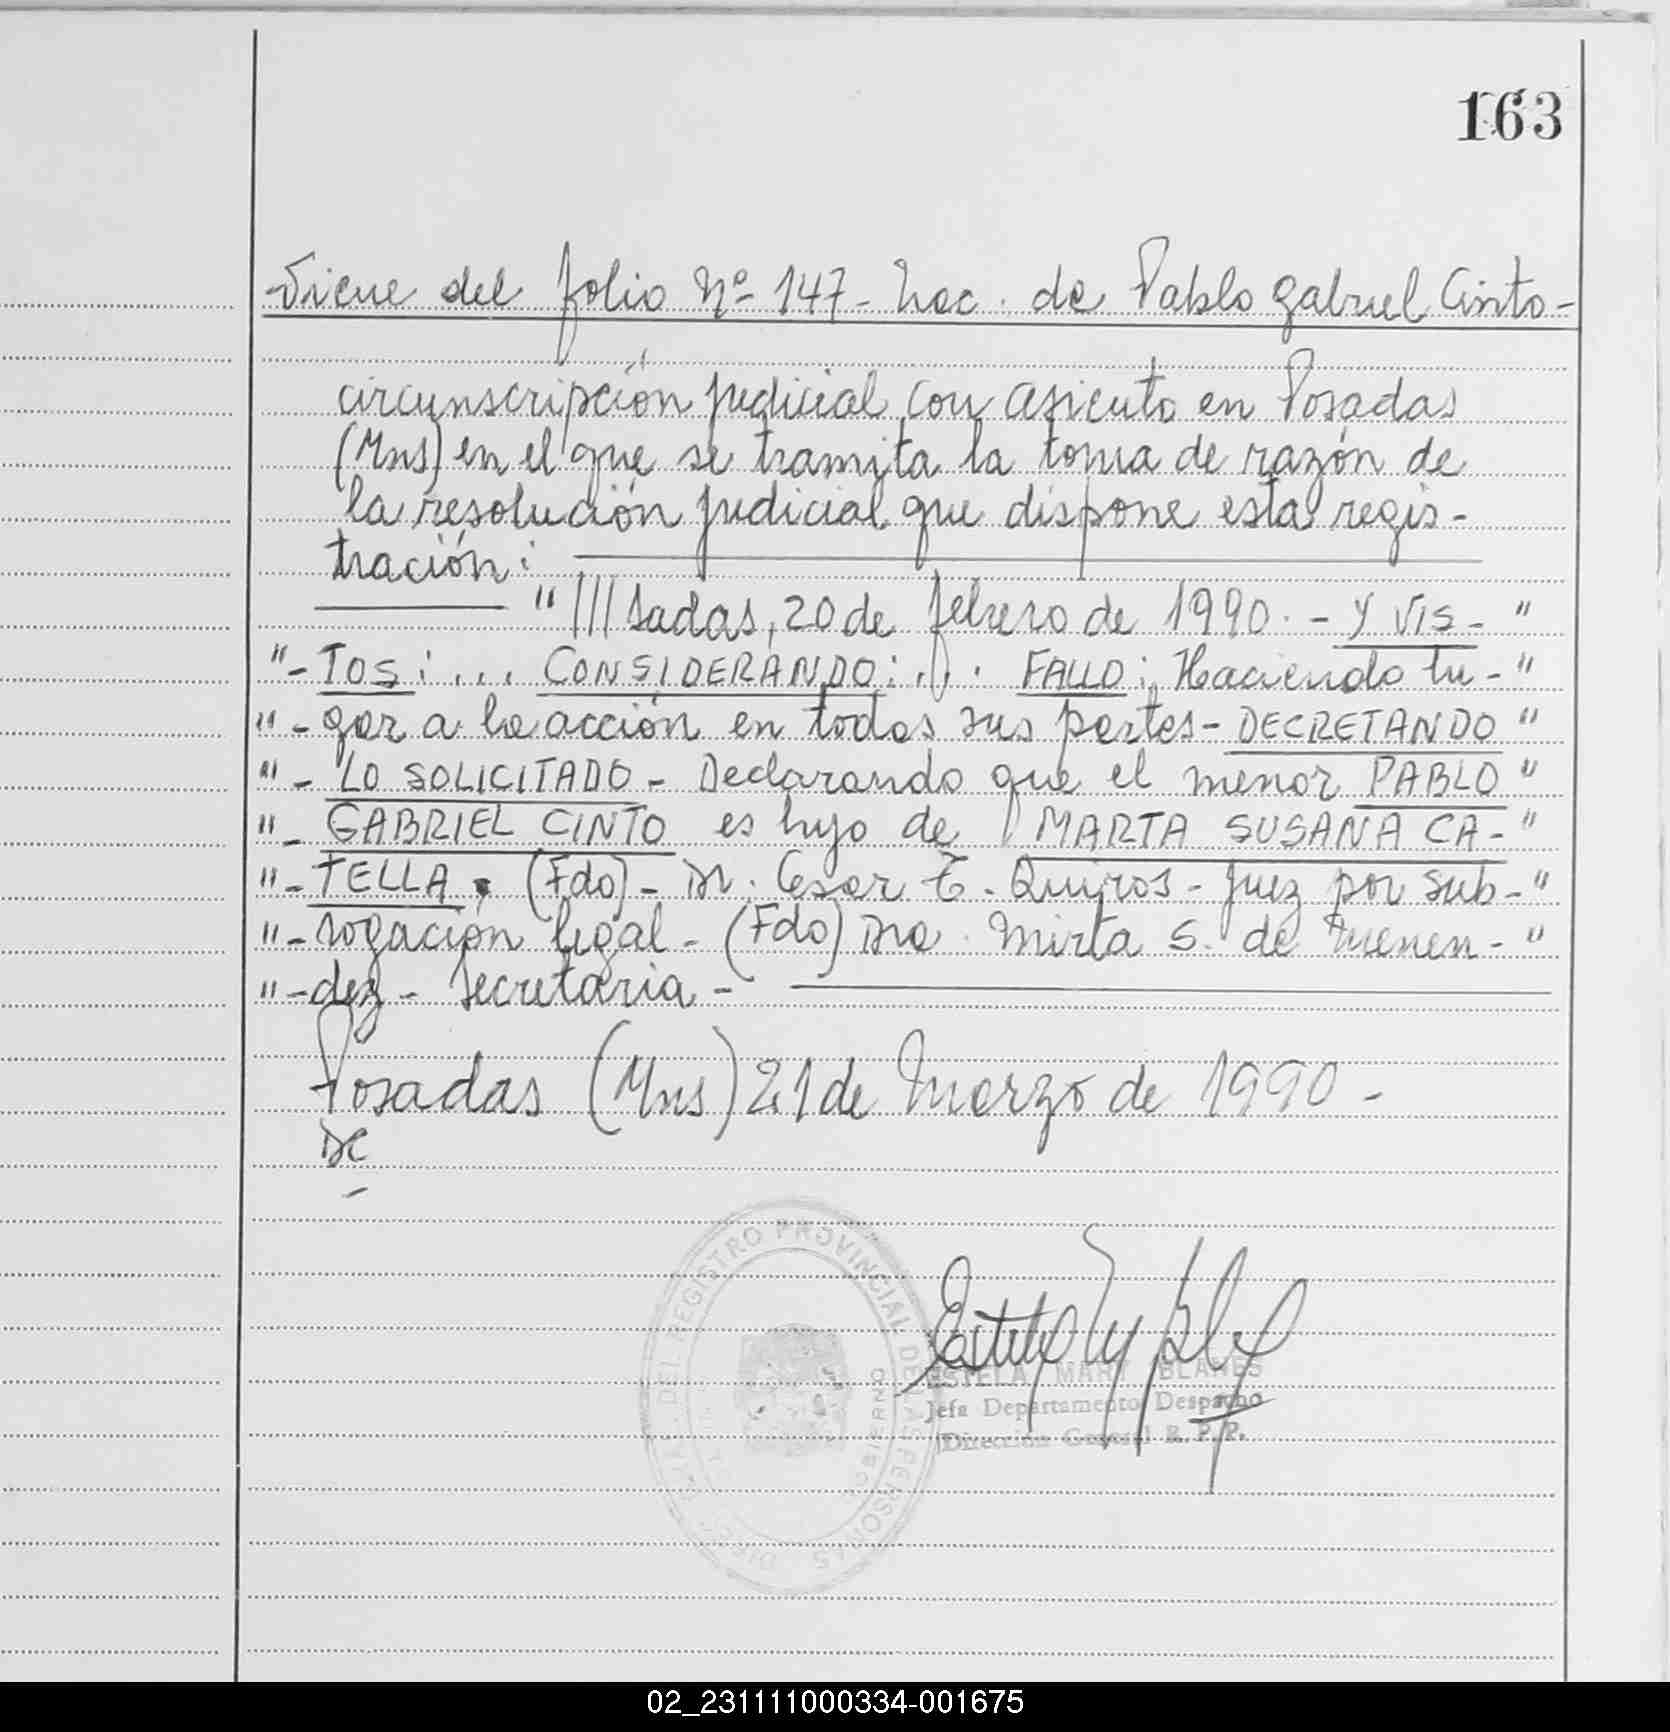 163
Viene del folio Nº 147 - Nac. de Pablo Gabriel Cinto -
circunscripción judicial con asiento en Posadas
(Mns) en el que se tramita la toma de razón de
la resolución judicial que dispone esta regis-
tración:
"///sadas, 20 de febrero de 1990. - Y VIS- "
"- TOS: ... CONSIDERANDO: ... FALLO: Haciendo lu- "
"- gar a la acción en todas sus partes - DECRETANDO "
"- LO SOLICITADO - Declarando que el menor PABLO "
"- GABRIEL CINTO es hijo de MARTA SUSANA CA- "
"- TELLA. (Fdo) - Dr. Cesar E. Quiros - Juez por sub- "
"- rogación legal - (Fdo) Dra. Mirta S. de Menen- "
"- dez - Secretaria -
Posadas (Mns) 21 de Marzo de 1990 -
DIREC. GRAL. DEL REGISTRO PROVINCIAL DE LAS PERSONAS
GOBIERNO
ESTELA MARY BLANES
Jefa Departamento Despacho
Dirección General R. P. P.
02_231111000334-001675